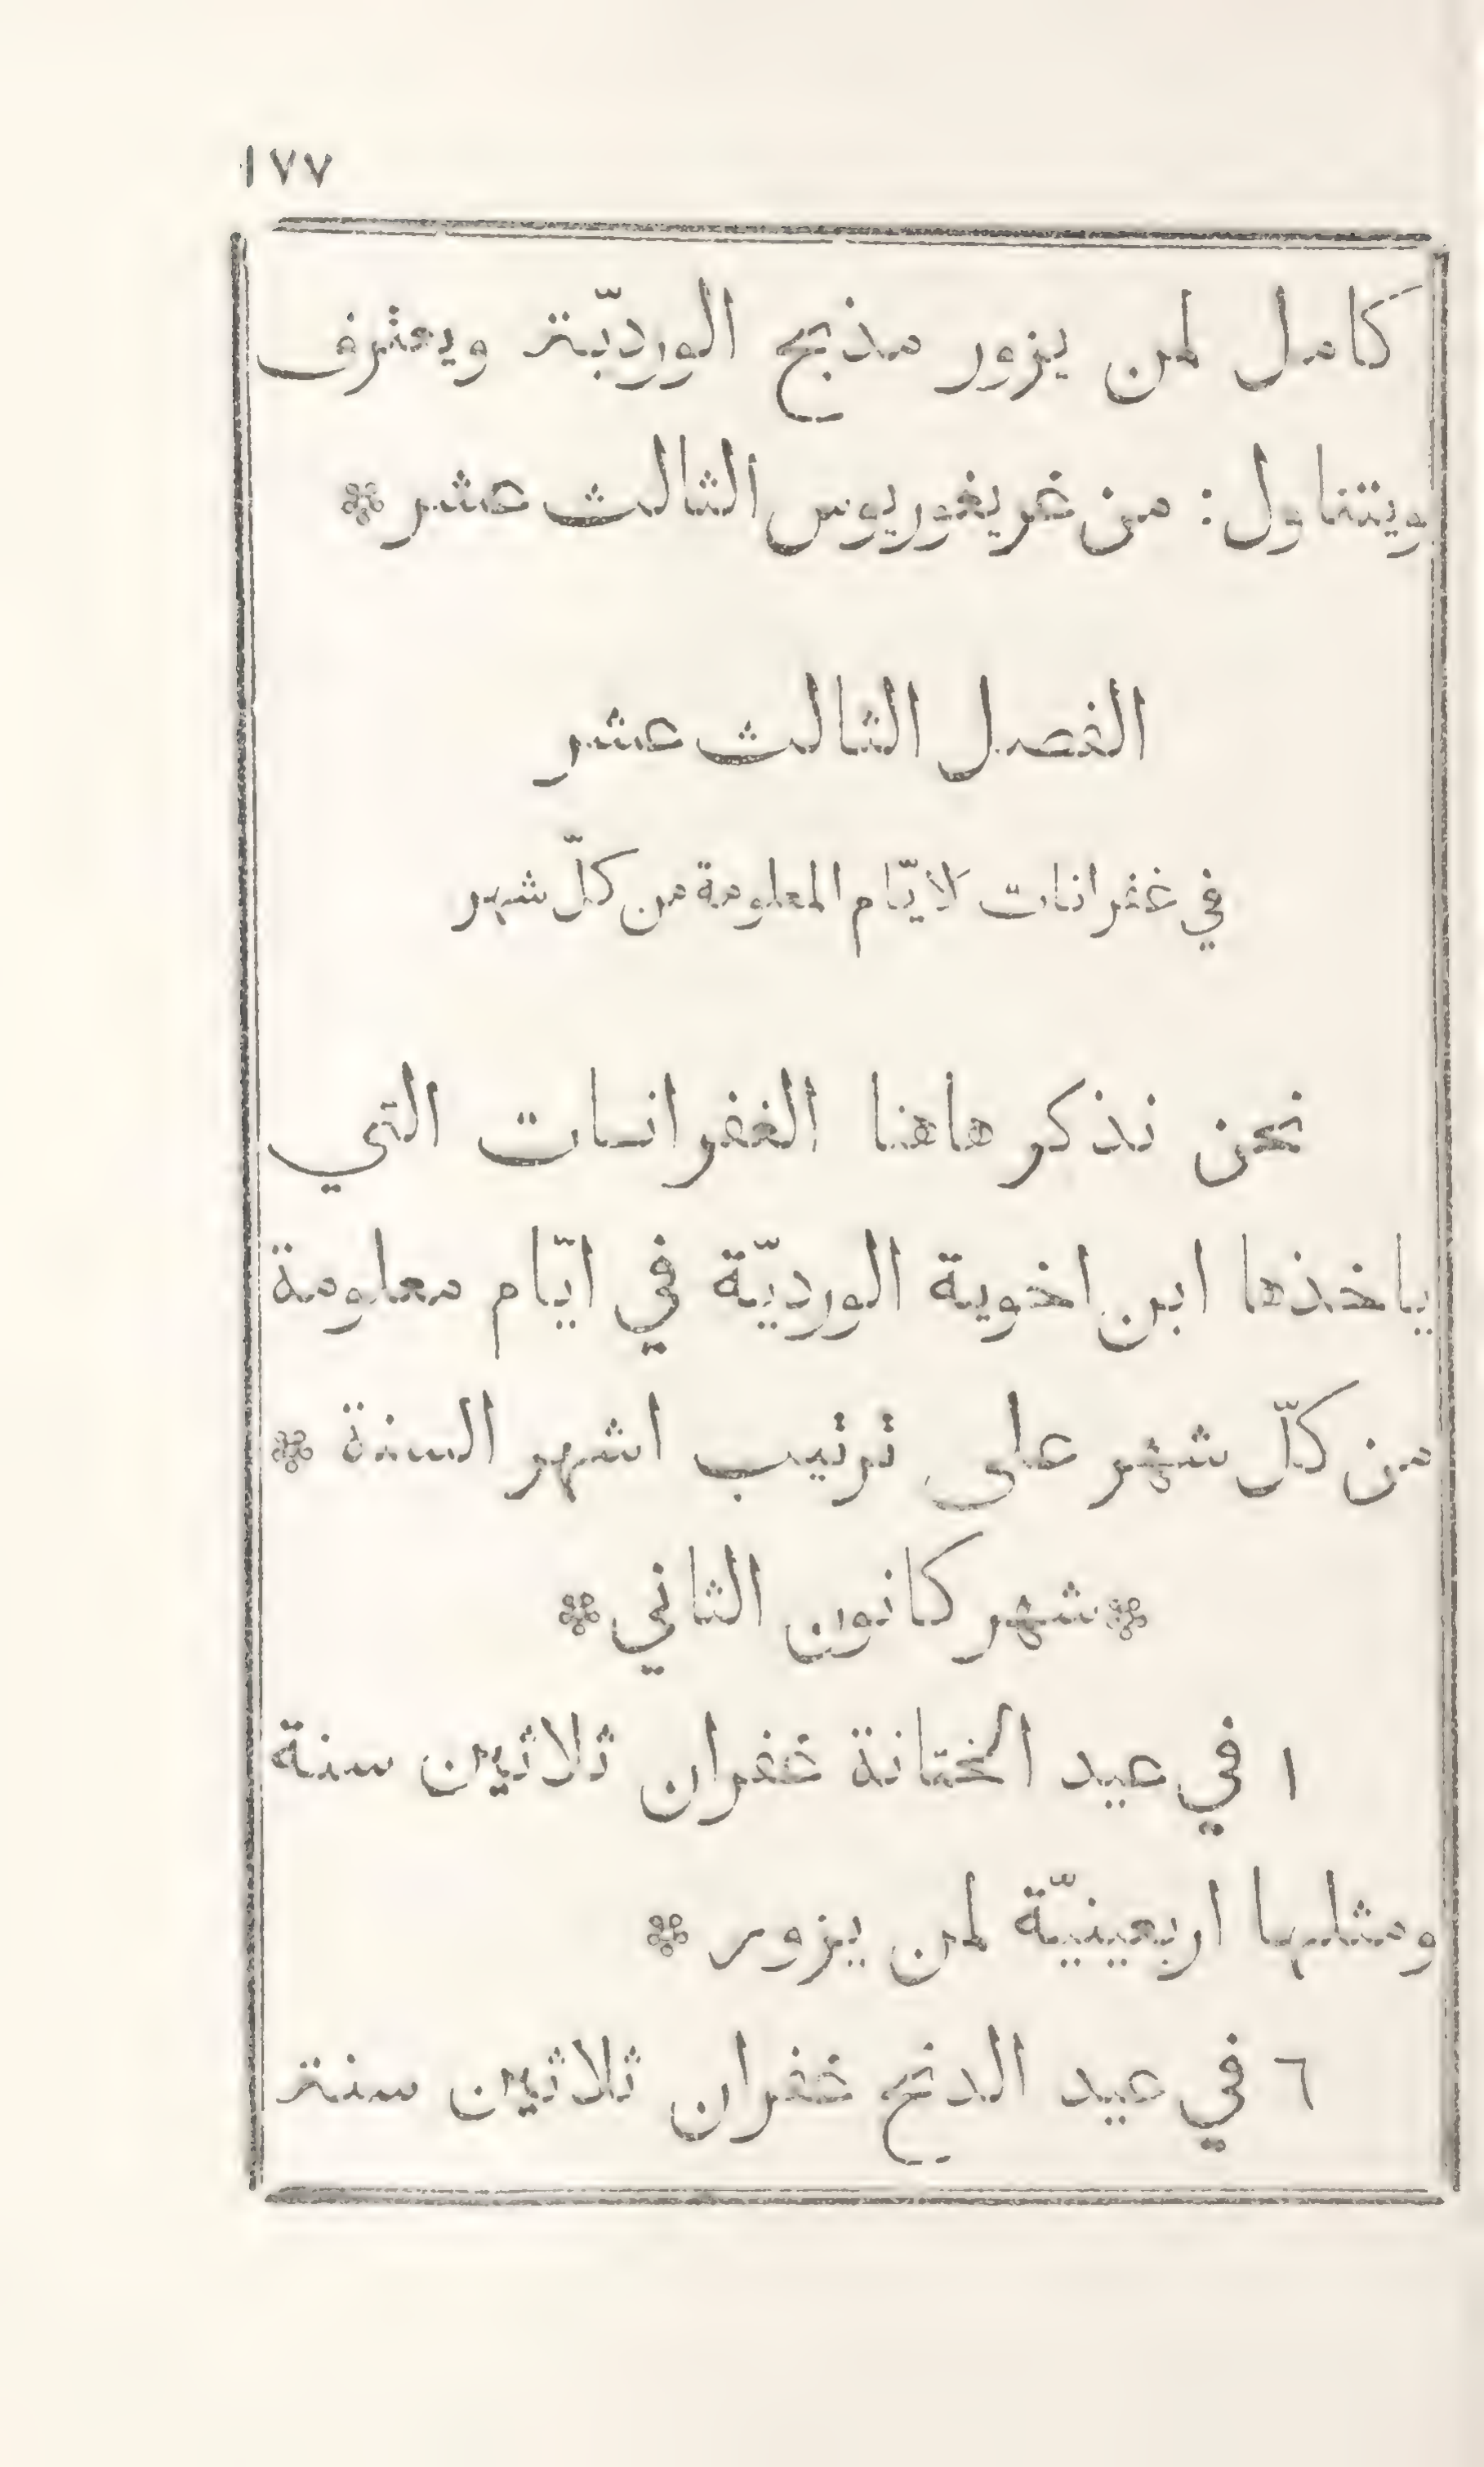 ١٧٧
كامل لمن يزور مذبح الورديّة ويعترف
ويتناول: من غريغوريوس الثالث عشر ❊
الفصل الثالث عشر
في غفرانات لايّام المعلومة من كلّ شهر
نحن نذكر هاهنا الغفرانات التي
ياخذها ابن اخوية الورديّة في ايّام معلومة
من كلّ شهر على ترتيب اشهر السنة ❊
❊ شهر كانون الثاني ❊
١ في عيد الختانة غفران ثلاثين سنة
ومثلها اربعينيّة لمن يزور ❊
٦ في عيد الدنح غفران ثلاثين سنة